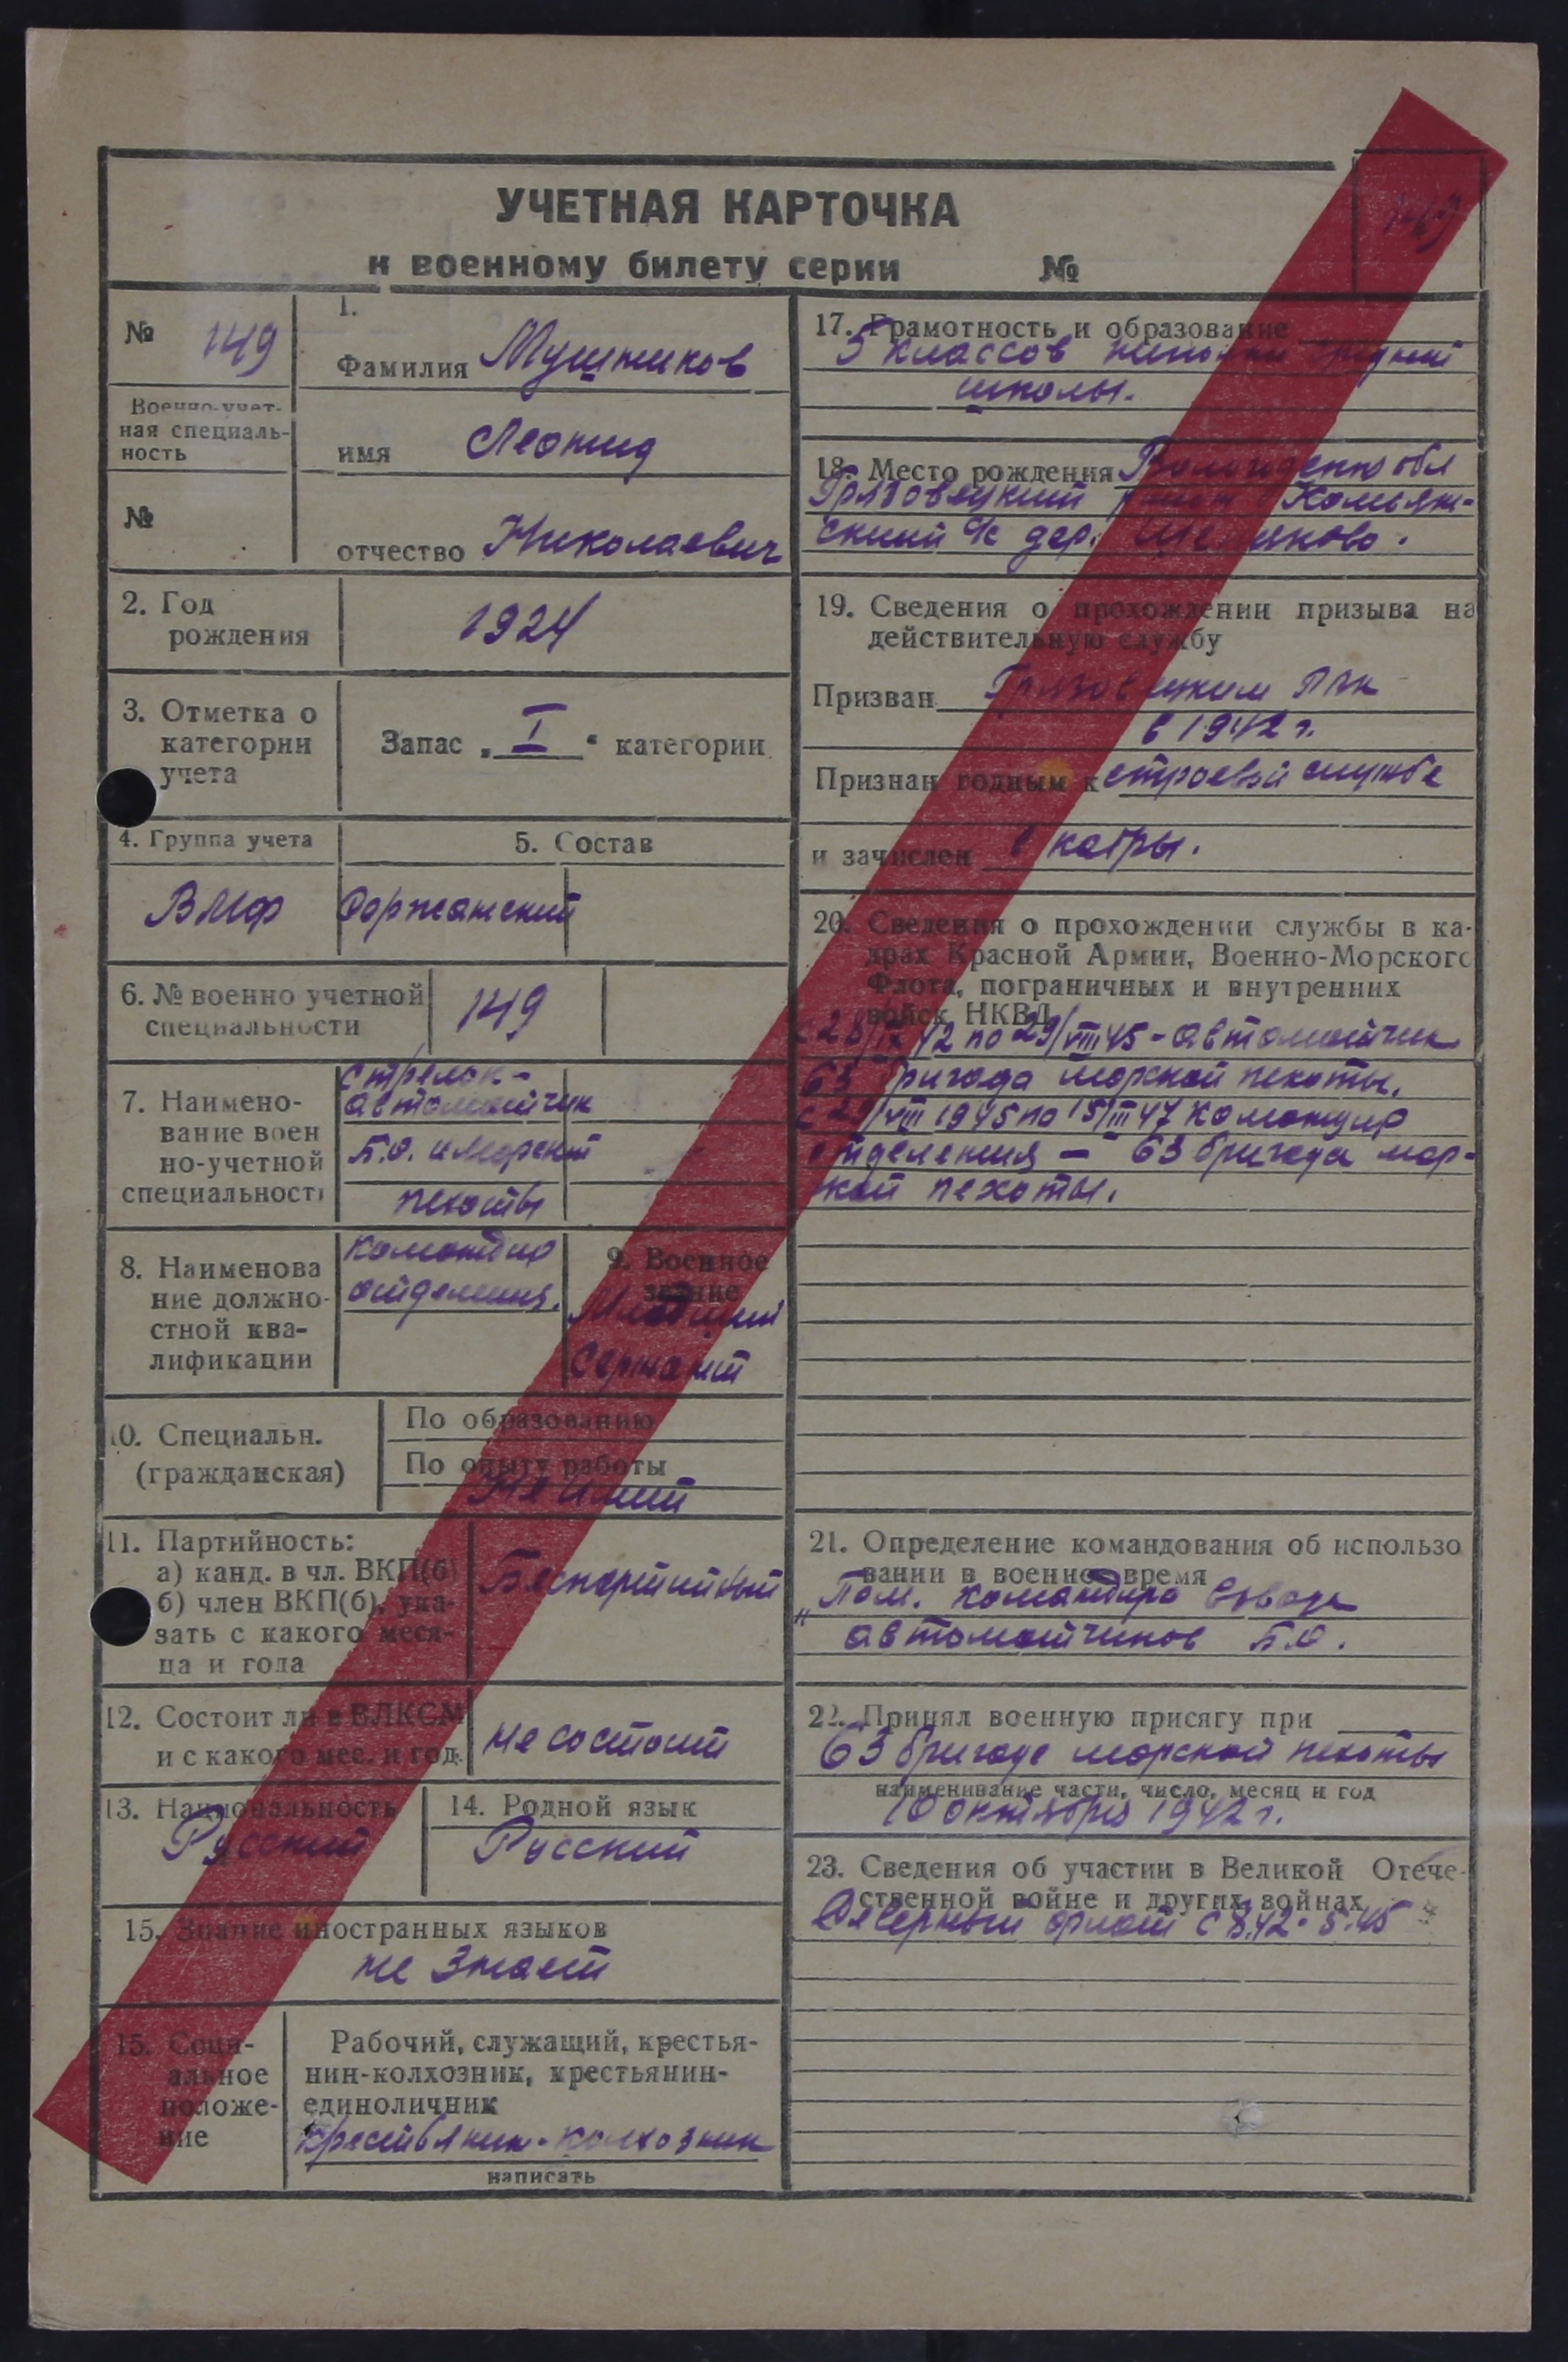 УЧЕТНАЯ КАРТОЧКА
к военному билету серии №
№ 149
Военно-учет-
ная специаль-
ность
№
1.
Фамилия Мушников
имя Леонид
отчество Николаевич
2. Год
рождения
1924
3. Отметка о
категории
учета
Запас „ I “ категории
4. Группа учета
ВМФ
5. Состав
Сержанский
6. № военно учетной
специальности
149
7. Наимено-
вание воен
но-учетной
специальност
стрелок-
автоматчик
Б.О. и морской
пехоты
8. Наименова
ние должно-
стной ква-
лификации
командир
отделения.
9. Военное
звание
Младший
Сержант
10. Специальн.
(гражданская)
По образованию
По опыту работы
Не имеет
11. Партийность:
а) канд. в чл. ВКП(б)
б) член ВКП(б), ука-
зать с какого меся-
ца и года
Беспартийный
12. Состоит ли в ВЛКСМ
и с какого мес. и год.
не состоит
13. Национальность
Русский
14. Родной язык
Русский
15. Знание иностранных языков
не знает
15. Соци-
альное
положе-
ние
Рабочий, служащий, крестья-
нин-колхозник, крестьянин-
единоличник
крестьянин-колхозник
написать
17. Грамотность и образование
5 классов средней
школы.
18. Место рождения обл
Грязовецкий
ский с/с дер.
19. Сведения о прохождении призыва на
действительную службу
Призван Грязовецким РВК
в 1942 г.
Признан годным к строевой службе
и зачислен в кадры.
20. Сведения о прохождении службы в ка-
драх Красной Армии, Военно-Морского
Флота, пограничных и внутренних
войск НКВД
с 28/IX 42 по 29/VIII 45 - автоматчик
63 бригада морской пехоты.
с 29/VIII 1945 по 15/III 47 командир
отделения — 63 бригада мор-
ской пехоты.
21. Определение командования об использо
вании в военное время
„Пом. командира взвода
автоматчиков Б.О.
22. Принял военную присягу при
63 бригаде морской пехоты
наименивание части, число, месяц и год
10 октября 1942 г.
23. Сведения об участии в Великой Отече-
ственной войне и других войнах
Северный флот с 42 - 5.45